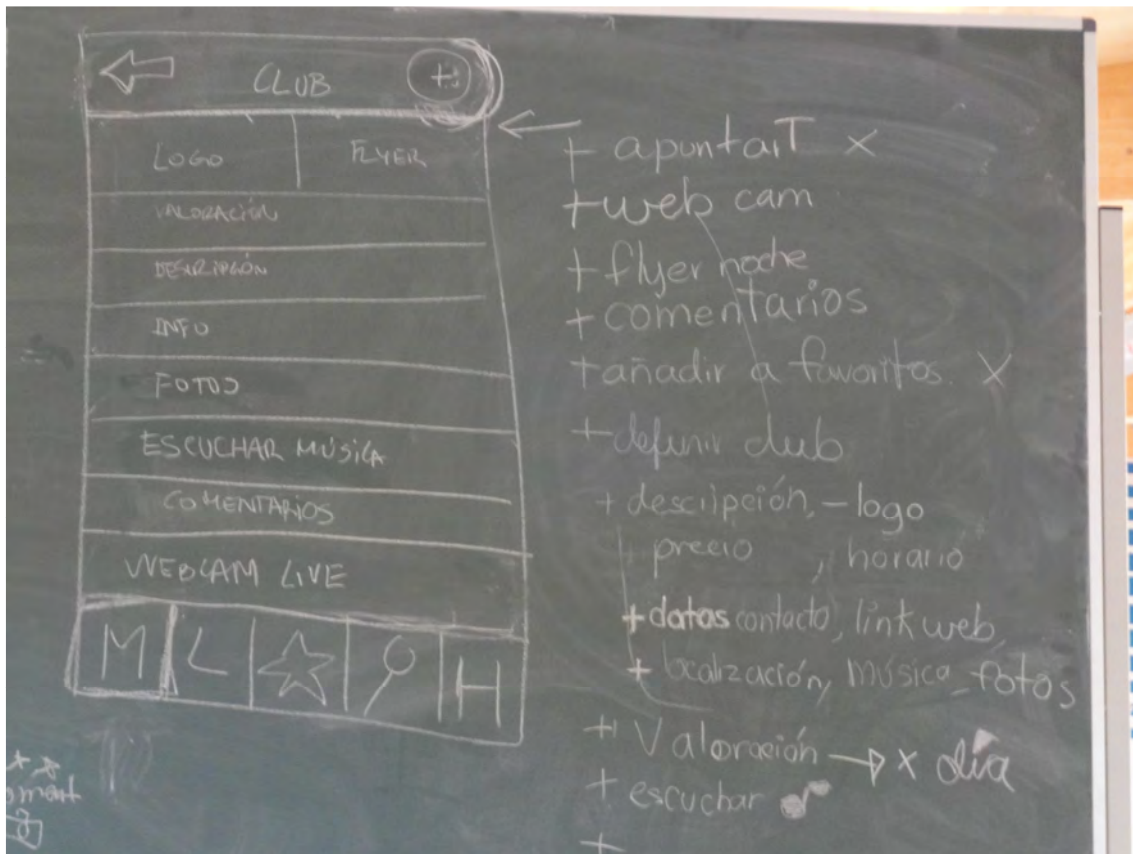 CLUB +
LOGO FLYER
VALORACIÓN
DESCRIPCIÓN
INFO
FOTOS
ESCUCHAR MÚSICA
COMENTARIOS
WEBCAM LIVE
M L H
+ apuntarT X
+ web cam
+ flyer noche
+ comentarios
+ añadir a favoritos. X
+ definir club
+ descripción, - logo
+ precio , horario
+ datos contacto, link web,
+ localización, música - fotos
+ Valoración → x día
+ escuchar
+